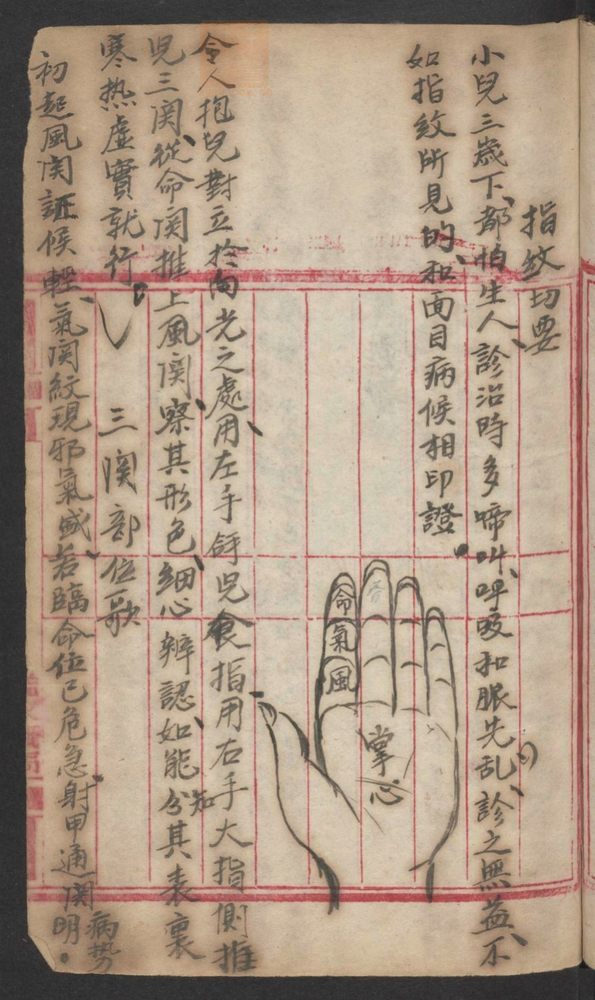 指紋切要
小兒三歲下、都怕生人、診治時多啼叫、呼吸和脹先乱、診之無益、不
如指紋所見的、和面目病候相印證。
命
氣
風
掌心
令人抱兒對立於向光之處、用左手𢬵兒食指、用右手大指側推
兒三関、從命関推上風関、察其形色、細心辨認、如能分知其表裏
寒热虛實就行。
三関部位歌
初起風関証候輕、氣関紋現邪氣盛、若臨命位已危急、射甲通関病势明。